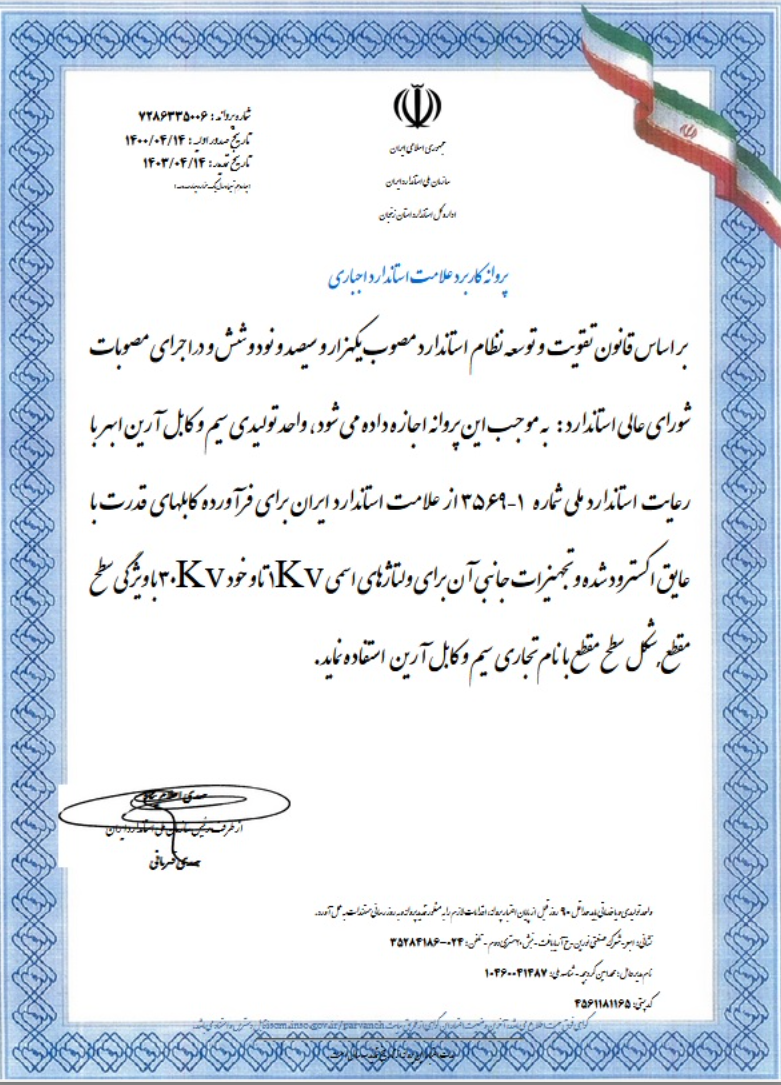 جمهوری اسلامی ایران
سازمان ملی استاندارد ایران
اداره کل استاندارد استان زنجان
شماره پروانه : ۷۲۸۶۳۳۵۰۰۶
تاریخ صدور اولیه : ۱۴۰۰/۰۴/۱۴
تاریخ تمدید : ۱۴۰۳/۰۴/۱۴
پروانه کاربرد علامت استاندارد اجباری
بر اساس قانون تقویت و توسعه نظام استاندارد مصوب یکهزار و سیصد و نود و شش و در اجرای مصوبات
شورای عالی استاندارد : به موجب این پروانه اجازه داده می شود ، واحد تولیدی سیم و کابل آرین ابهر با
رعایت استاندارد ملی شماره ۱-۳۵۶۹ از علامت استاندارد ایران برای فرآورده کابلهای قدرت با
عایق اکسترود شده و تجهیزات جانبی آن برای ولتاژهای اسمی ۱Kv تا و خود ۳۰Kv با ویژگی سطح
مقطع,شکل سطح مقطع با نام تجاری سیم و کابل آرین استفاده نماید.
از طرف رئیس سازمان ملی استاندارد ایران
مهدی قربانی
واحد تولیدی و یا خدماتی باید حداقل ۹۰ روز قبل از پایان اعتبار پروانه، اقدامات لازم را به منظور تمدید پروانه و به روز رسانی مستندات به عمل آورد.
نشانی: ابهر - شهرک صنعتی نورین - خ آریابافت - نبش ۲۰متری دوم - تلفن: ۰۲۴-۳۵۲۸۴۱۸۶
نام مدیرعامل: محمدامین گردبچه - شناسه ملی: ۱۰۴۶۰۰۴۱۴۸۷
کد پستی: ۴۵۶۱۱۸۱۱۶۵